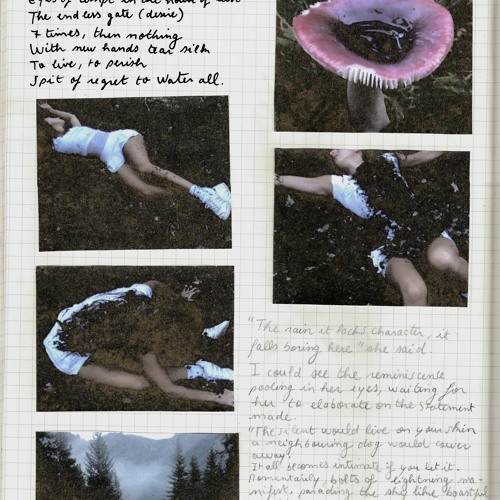 Eyes of
The endless gate (desire)
7 times, then nothing
With new hands tear silk
To live, to perish
Spit of regret to water all.
"The rain it lacks character, it
falls boring here" she said.
I could see the reminiscence
pooling in her eyes, waiting for
her to elaborate on the statement
made.
"The silent would live on your skin
a neighbouring dog would cower
away.
It all becomes intimate if you let it.
Momentarily, bolts of lightning ma-
nifest, parading the sky like boastful